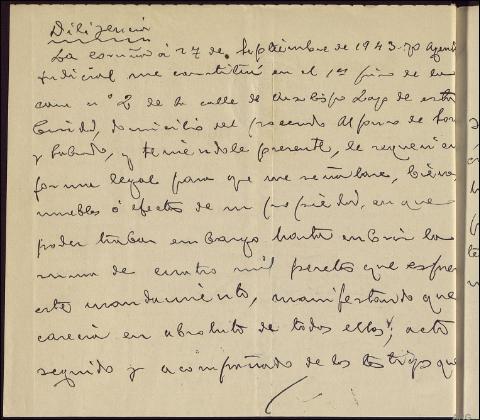 Diligencia
La Coruña á 27 de Septiembre de 1943. Yo Agente
Judicial me constituí en el 1er piso de la
casa nº 2 de la calle de Arzobispo Lago de esta
Ciudad, domicilio del procesado Alfonso de
y, y teniéndole presente, le requerí en
forma legal para que me señalara, bienes
muebles ó efectos de su propiedad, en que
poder trabar embargo hasta cubrir la
suma de cuatro mil pesetas que expresa
este mandamiento, manifestando que
carecía en absoluto de todos ellos, acto
seguido y acompañado de los testigos que